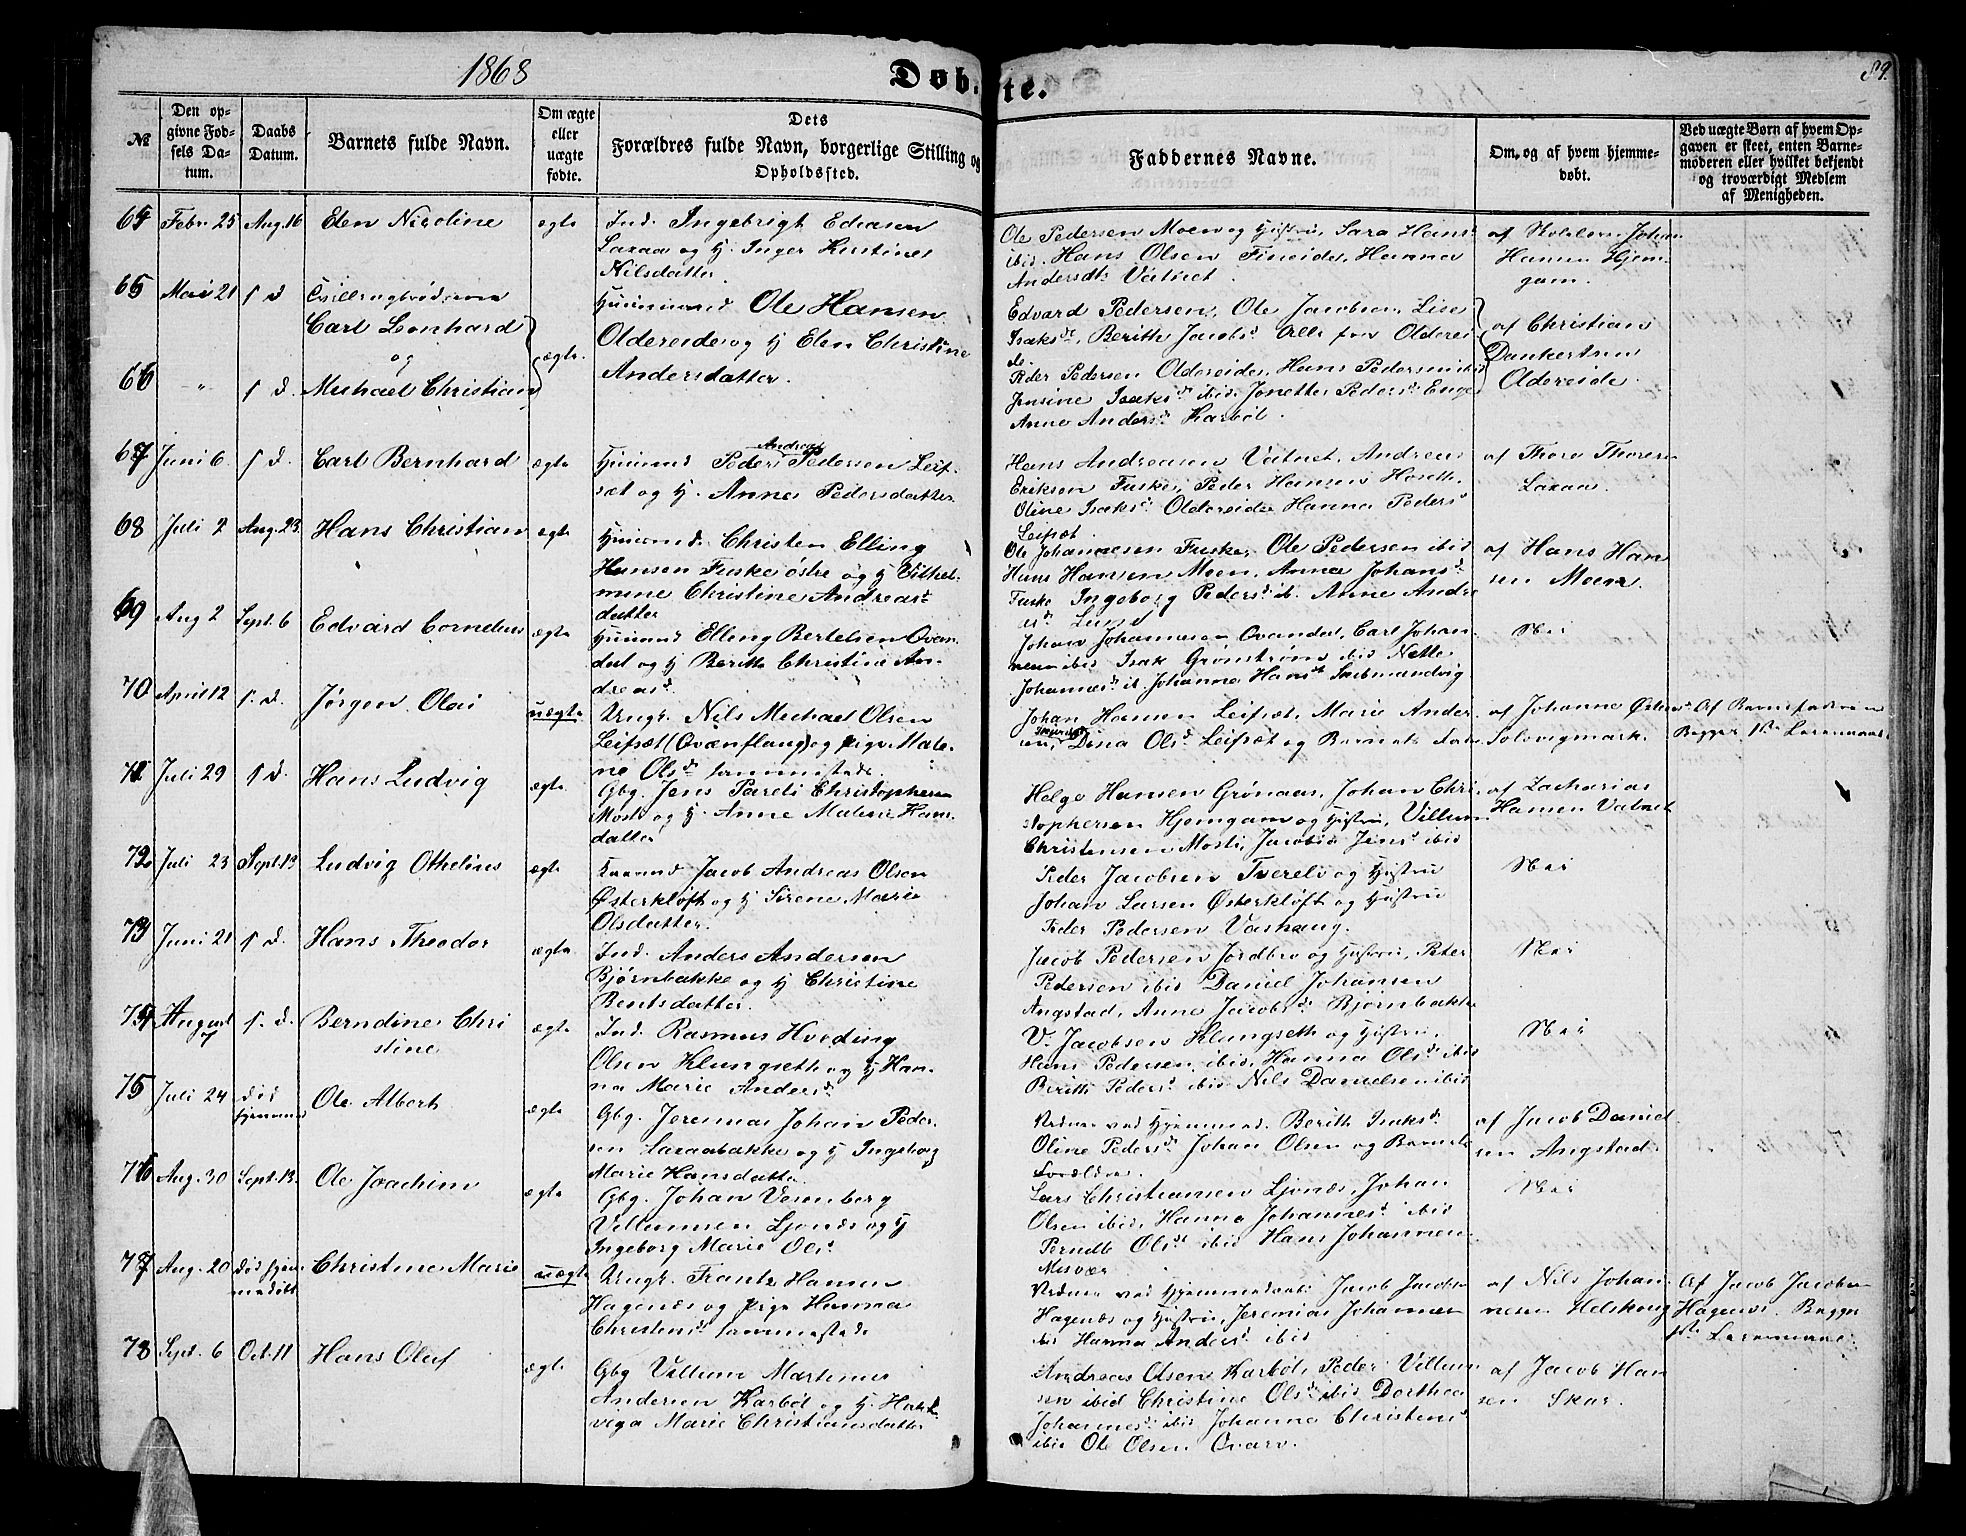 1868
Døbte.
89.
№
Den opgivne Fødsels Datum.
Daabs Datum.
Barnets fulde Navn.
Om ægte eller uægte fødte.
Dets Forældres fulde Navn, borgerlige Stilling og Opholdssted.
Faddernes Navne.
Om, og af hvem hjemmedøbt.
Ved uægte Børn af hvem Opgaven er skeet, enten Barnemoderen eller hvilket bekjendt og troværdigt Medlem af Menigheden.
64 Febr. 25 Aug. 16 Elen Nicoline ægte
Ind. Ingebrigt Edvasen
Laxaa og H. Inger Kirstine
Nilsdatter
Ole Pedersen Moen og Hustru, Sara Hansd
ibid. Hans Olsen Fineide, Hanna
Andersdt. Vatnet.
af Skolelærer Johan
Hansen Hjem-
gam.
65 Mai 21 s. d. Tvillingbrødrene
Carl Leonhard
og
66 " s. d. Michael Christian
ægte.
Huusmand Ole Hansen
Oldereide og H Elen Christine
Andersdatter.
Edvard Pedersen, Ole Jacobsen, Lise
Isaksd, Berith Jacobsd. Alle fra Olderei
de.
Peder Pedersen Oldereide, Hans Pedersen ibid
Jensine Isaksd ibid. Jonette Pedersd. Enge
Anne Andersd. Karbøl.
af Christian
Dankertsen
Oldereide.
67 Juni 6. s. d. Carl Bernhard ægte
Huusmd Peder Andreas Pedersen Leif-
sæt og H. Anne Pedersdatter
Hans Andreasen Vatnet, Andreas
Eriksen Fuske, Peder Hansen
Oline Isaksd. Oldereide Hanna Pedersd
Leifsæt.
af Thore Thoresen
Laxaa.
68 Juli 2 Aug. 23. Hans Christian ægte
Huusmd. Christen Elling
Hansen Fuske østre og H Vilhel-
mine Christine Andreas-
datter
Ole Johannesen Fuske, Ole Pedersen ibid
Hans Hansen Moen, Anna Johansd.
Fuske Ingeborg Pedersd ib. Anne Andre
asd Lund
af Hans Han
sen Moen.
69 Aug 2 Sept. 6 Edvard Cornelius ægte
Huusmd Elling Bertelsen Ovan-
dal og H Berith Christine An-
dreasd.
Johan Johannesen Ovandal, Carl Johan-
nesen ibid Isak Grønstrøm ibid Nette
Johannesd. ib. Johanna Hansd
Nei
70 April 12 s. d. Jørgen Olai uægte
Ungk. Nils Michael Olsen
Leifsæt (Ovænflaug) og Pige Male-
ne Olsd sammesteds.
Johan Hansen Leifsæt, Marie Ander
Dina Olsd Leifsæt og Barnets Fader
af Johanne
Solvigmark.
Af Barnefaderen
Begges 1ste Leiermaal
71 Juli 29 s. d. Hans Ludvig ægte
Gbg. Jens Pareli Christophersen
Mosti og H. Anne Malene Hans-
datter
Helge Hansen Grønaas, Johan Chri-
stophersen Hjemgam og Hustru, Villum
Christensen Mosti, Jacobia Jensd ibid
af Zacharias
Hansen Vatnet
72 Juli 23 Sept. 13 Ludvig Othelius ægte
Jacob Andreas Olsen
Østerkløft og H Sirene Marie
Olsdatter.
Peder Jacobsen Tverelv og Hustru
Johan Larsen Østerkløft og Hustru
Peder Pedersen Vashaug.
Nei
73 Juni 21 s. d. Hans Theodor ægte.
Ind. Anders Andersen
Bjørnbakke og H Christine
Bentsdatter
Jacob Pedersen Jordbro og Hustru, Peter
Pedersen ibid Daniel Johansen
Angstad, Anne Jacobsd. Bjørnbakke
Nei
74 August s. d. Berndine Chri
stine
ægte
Ind. Rasmus Hveding
Olsen Klungseth og H Han-
na Marie Andersd
V. Jacobsen Klungseth og Hustru.
Hans Pedersen ibid, Hanna Olsd ibid
Berith Pedersd ibid Nils Danielsen ibid
Nei
75 Juli 24 død
hjemme
Ole Albert ægte
Gbg. Jeremias Johan Peder-
sen Laxaabakke og H Ingeborg
Marie Hansdatter
Vidner ved Hjemmed. Berith Isaksd.
Oline Pedersd. Johan Olsen og Barnets
Forældre.
af Jacob Daniel
sen Angstad.
76 Aug. 30 Sept. 13. Ole Joachim ægte
Gbg. Johan Vesenberg
Villumsen Ljønæs og H
Ingeborg Marie Olsd
Lars Christiansen Ljønæs, Johan
Olsen ibid, Hanna Johannesd. ibid
Pernelle Olsd ibid Hans Johannesen
Misvær
Nei
77 Aug. 20 død hjem
medøbt
Christine Marie uægte
Ungk. Frantz Hansen
Hagenæs og Pige Hanna
Christensd sammesteds
Vidner ved Hjemmedaab Jacob Jacobsen
Hagenæs og Hustru, Jeremias Johannesen
ibid Hanna Andersd ibid
af Nils Johan-
nesen Helskoug
Af Jacob Jacobsen
Hagenæs. Begges
1ste Leiermaal
78 Sept. 6 Oct. 11 Hans Oluf ægte
Gbg Villum Martinus
Andersen Karbøl og H. Hart-
viga Marie Christiansdatter
Andreas Olsen Karbøl, Peder Villum
sen ibid Christine Olsd ibid Dorthea
Johannesd ibid Johanna Christensd
ibid Ole Olsen Qvarv.
af Jacob Han
sen Skar.